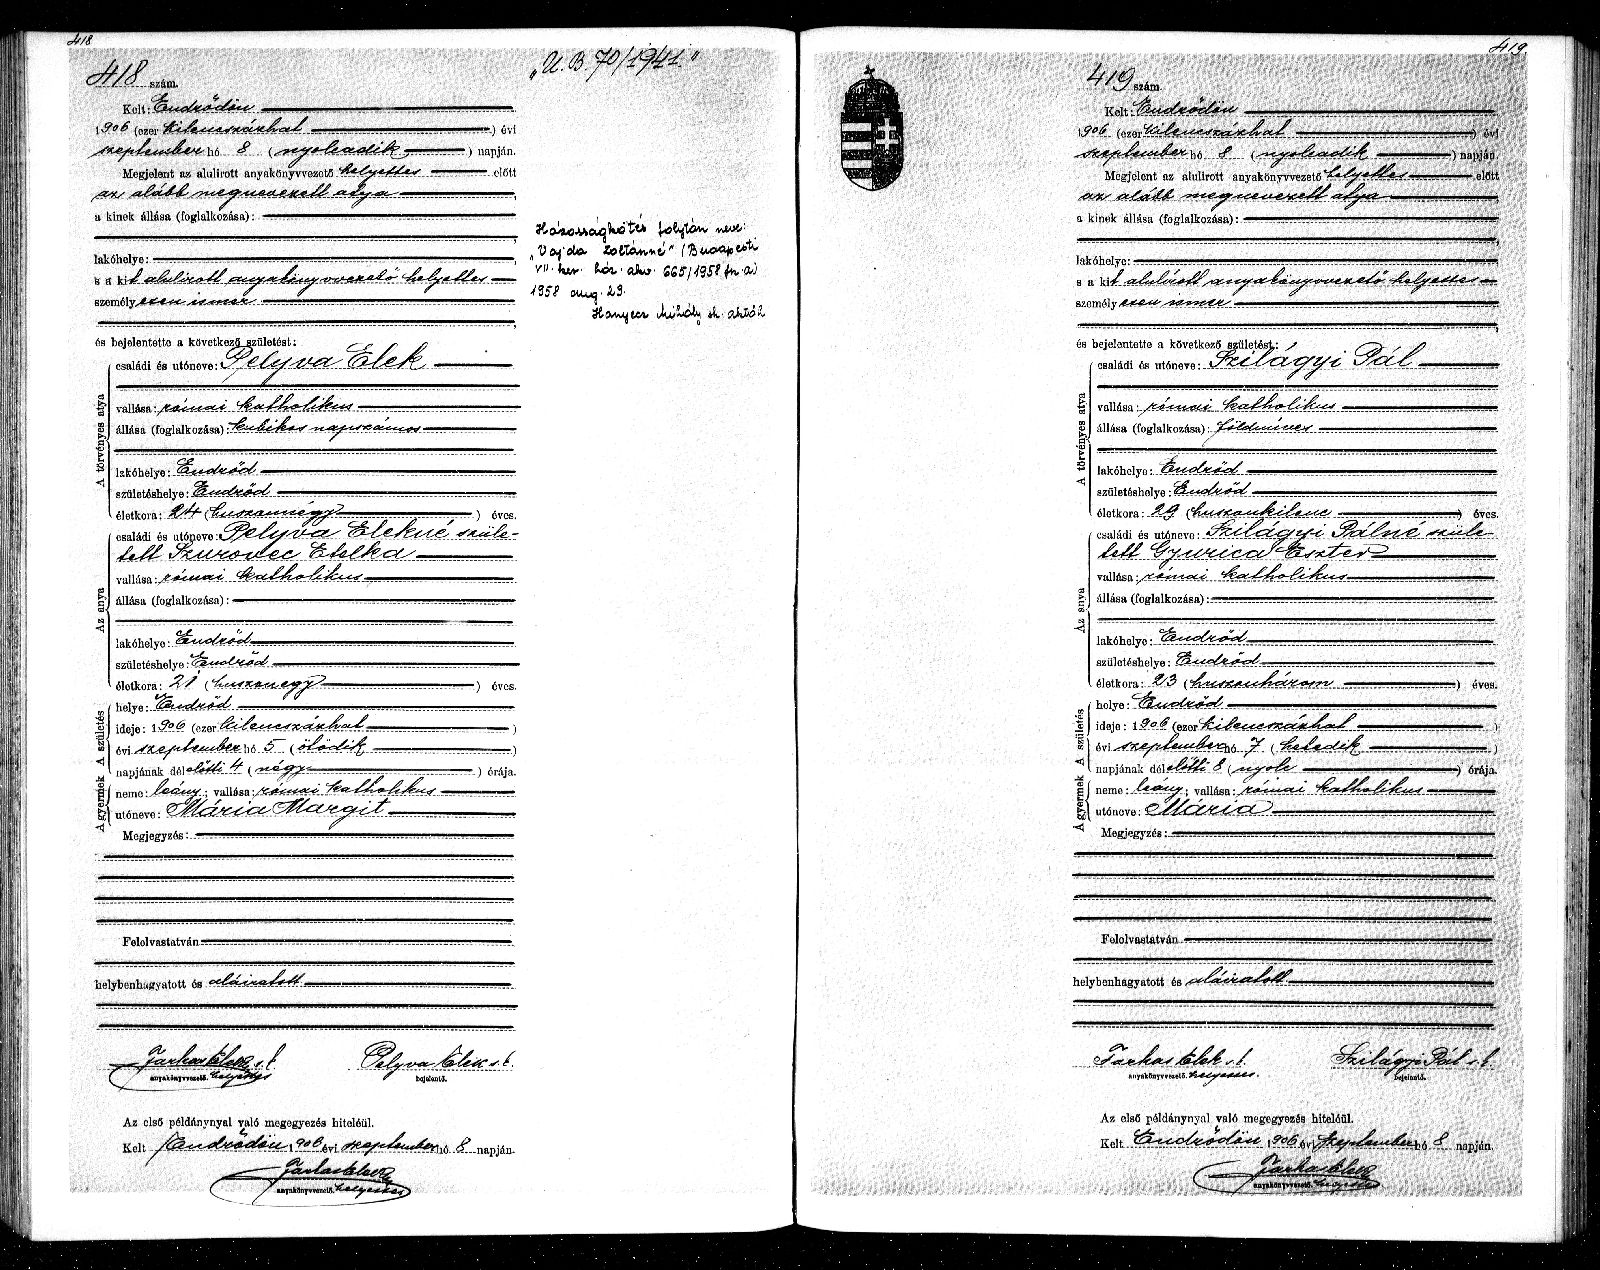 418
418 szám.
„U. B. 70/1941."
Kelt: Endrődön
1906 (ezer kilencszázhat) évi
szeptember hó 8 (nyolcadik) napján.
Megjelent az alulirott anyakönyvvezető helyettes előtt
az alább megnevezett atya,
a kinek állása (foglalkozása):
lakóhelye:
s a kit alulírott anyakönyvvezető helyettes
személyesen ismer
és bejelentette a következő születést:
A törvényes atya
családi és utóneve: Pelyva Elek
vallása: római katholikus
állása (foglalkozása): kubikos napszámos
lakóhelye: Endrőd
születéshelye: Endrőd
életkora: 24 (huszonnégy) éves.
Az anya
családi és utóneve: Pelyva Elekné szüle-
tett Szurovec Etelka
vallása: római katholikus
állása (foglalkozása):
lakóhelye: Endrőd
születéshelye: Endrőd
életkora: 21 (huszonegy) éves.
A születés
helye: Endrőd
ideje: 1906 (ezer kilencszázhat)
évi szeptember hó 5 (ötödik)
napjának délelőtti 4 (négy) órája.
A gyermek
neme: leány; vallása: római katholikus
utóneve: Mária Margit
Megjegyzés:
Felolvastatván
helybenhagyatott és aláíratott
Farkas Elek s.k.
anyakönyvvezető. helyettes
Pelyva Elek s.k.
bejelentő.
Az első példánynyal való megegyezés hiteléül.
Kelt Endrődön, 1906 évi szeptember hó 8 napján.
Farkas Elek
anyakönyvvezető. helyettes
Házasságkötés folytán neve:
„Vajda Zoltánné" (Budapesti
VII. ker. ház. akv. 665/1958 fn. a)
1958 aug. 29.
Hanyecz Mihály sk.
419
419 szám.
Kelt: Endrődön
1906 (ezer kilencszázhat) évi
szeptember hó 8 (nyolcadik) napján.
Megjelent az alulirott anyakönyvvezető helyettes előtt
az alább megnevezett atya,
a kinek állása (foglalkozása):
lakóhelye:
s a kit alulírott anyakönyvvezető helyettes
személyesen ismer
és bejelentette a következő születést:
A törvényes atya
családi és utóneve: Szilágyi Pál
vallása: római katholikus
állása (foglalkozása): földmíves
lakóhelye: Endrőd
születéshelye: Endrőd
életkora: 29 (huszonkilenc) éves.
Az anya
családi és utóneve: Szilágyi Pálné szüle-
tett Gyurica Eszter
vallása: római katholikus
állása (foglalkozása):
lakóhelye: Endrőd
születéshelye: Endrőd
életkora: 23 (huszonhárom) éves.
A születés
helye: Endrőd
ideje: 1906 (ezer kilencszázhat)
évi szeptember hó 7 (hetedik)
napjának délelőtti 8 (nyolc) órája.
A gyermek
neme: leány; vallása: római katholikus
utóneve: Mária
Megjegyzés:
Felolvastatván
helybenhagyatott és aláíratott
Farkas Elek s.k.
anyakönyvvezető. helyettes.
Szilágyi Pál s.k.
bejelentő.
Az első példánynyal való megegyezés hiteléül.
Kelt Endrődön 1906 évi szeptember hó 8 napján.
Farkas Elek
anyakönyvvezető. helyettes